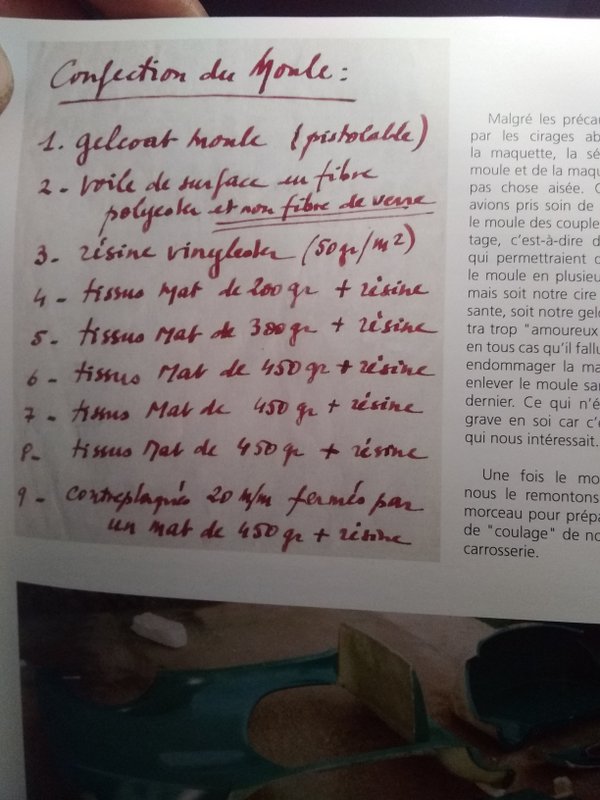 Confection du Moule :
1. gelcoat moule (pistolable)
2 - voile de surface en fibre
polyester et non fibre de verre
3 - résine vinylester (50gr/m2)
4 - tissus Mat de 200 gr + résine
5 - tissus Mat de 300gr + résine
6 - tissus Mat de 450gr + résine
7 - tissus Mat de 450gr + résine
8 - tissus Mat de 450gr + résine
9 - contreplaqués 20 m/m fermés par
un mat de 450gr + résine
Malgré les précau
par les cirages ab
la maquette, la sé
moule et de la maqu
pas chose aisée. C
avions pris soin de
le moule des couple
tage, c'est-à-dire d
qui permettraient d
le moule en plusieu
mais soit notre cire
sante, soit notre gelc
tra trop "amoureux
en tous cas qu'il fallu
endommager la ma
enlever le moule san
dernier. Ce qui n'é
grave en soi car c'e
qui nous intéressait.
Une fois le mo
nous le remontons
morceau pour prépa
de "coulage" de no
carrosserie.